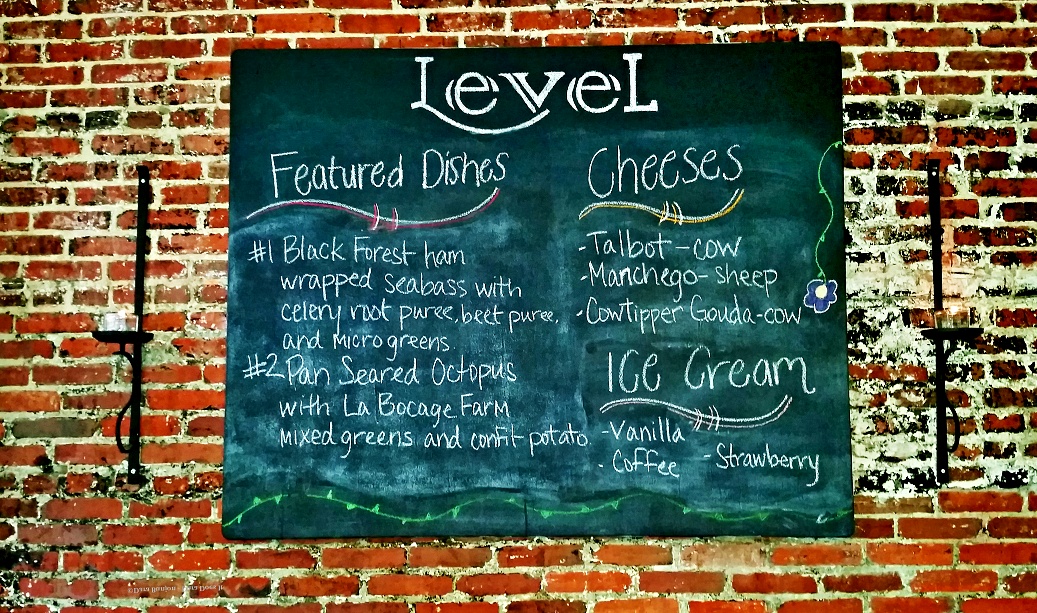 LeveL
Featured Dishes
#1 Black Forest ham
wrapped seabass with
celery root puree, beet puree,
and microgreens
#2 Pan Seared Octopus
with La Bocage Farm
mixed greens and confit potato.
Cheeses
-Talbot-cow
-Manchego-sheep
-Cowtipper Gouda-cow
ICE Cream
-Vanilla
-Coffee
-Strawberry